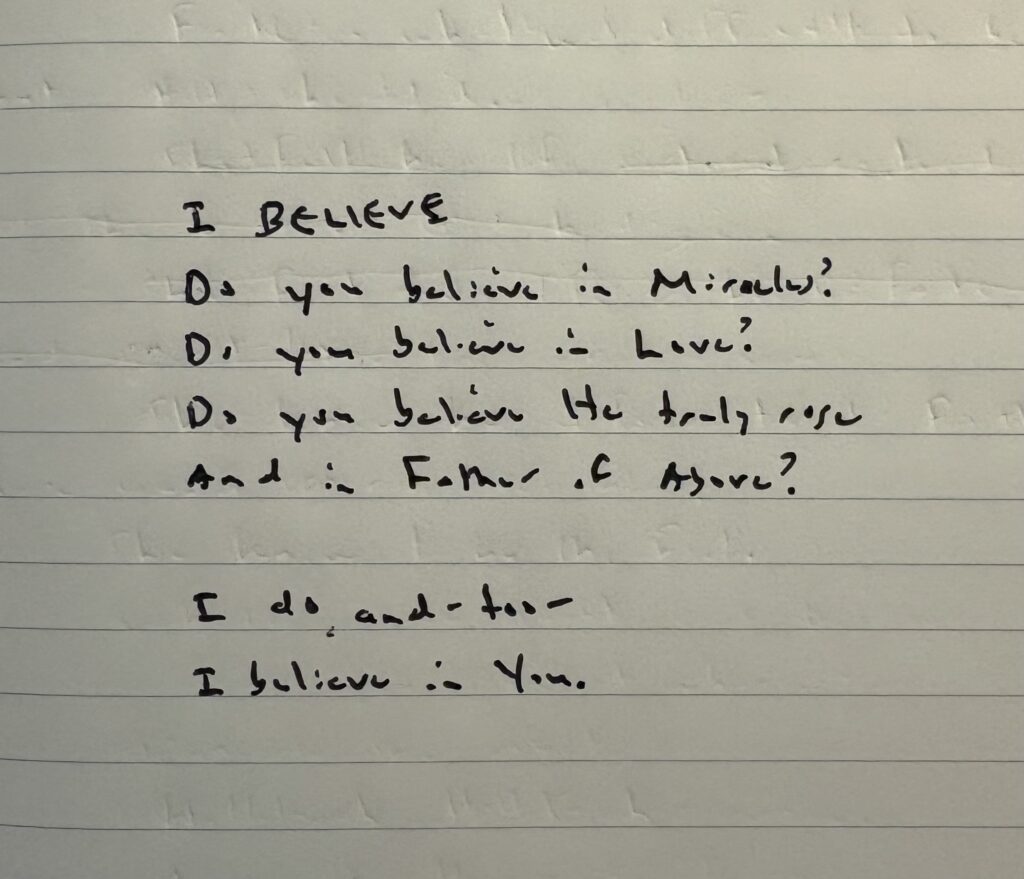 I BELIEVE
Do you believe in Miracles?
Do you believe in Love?
Do you believe He truly rose
And in Father of Above?
I do, and - too -
I believe in You.